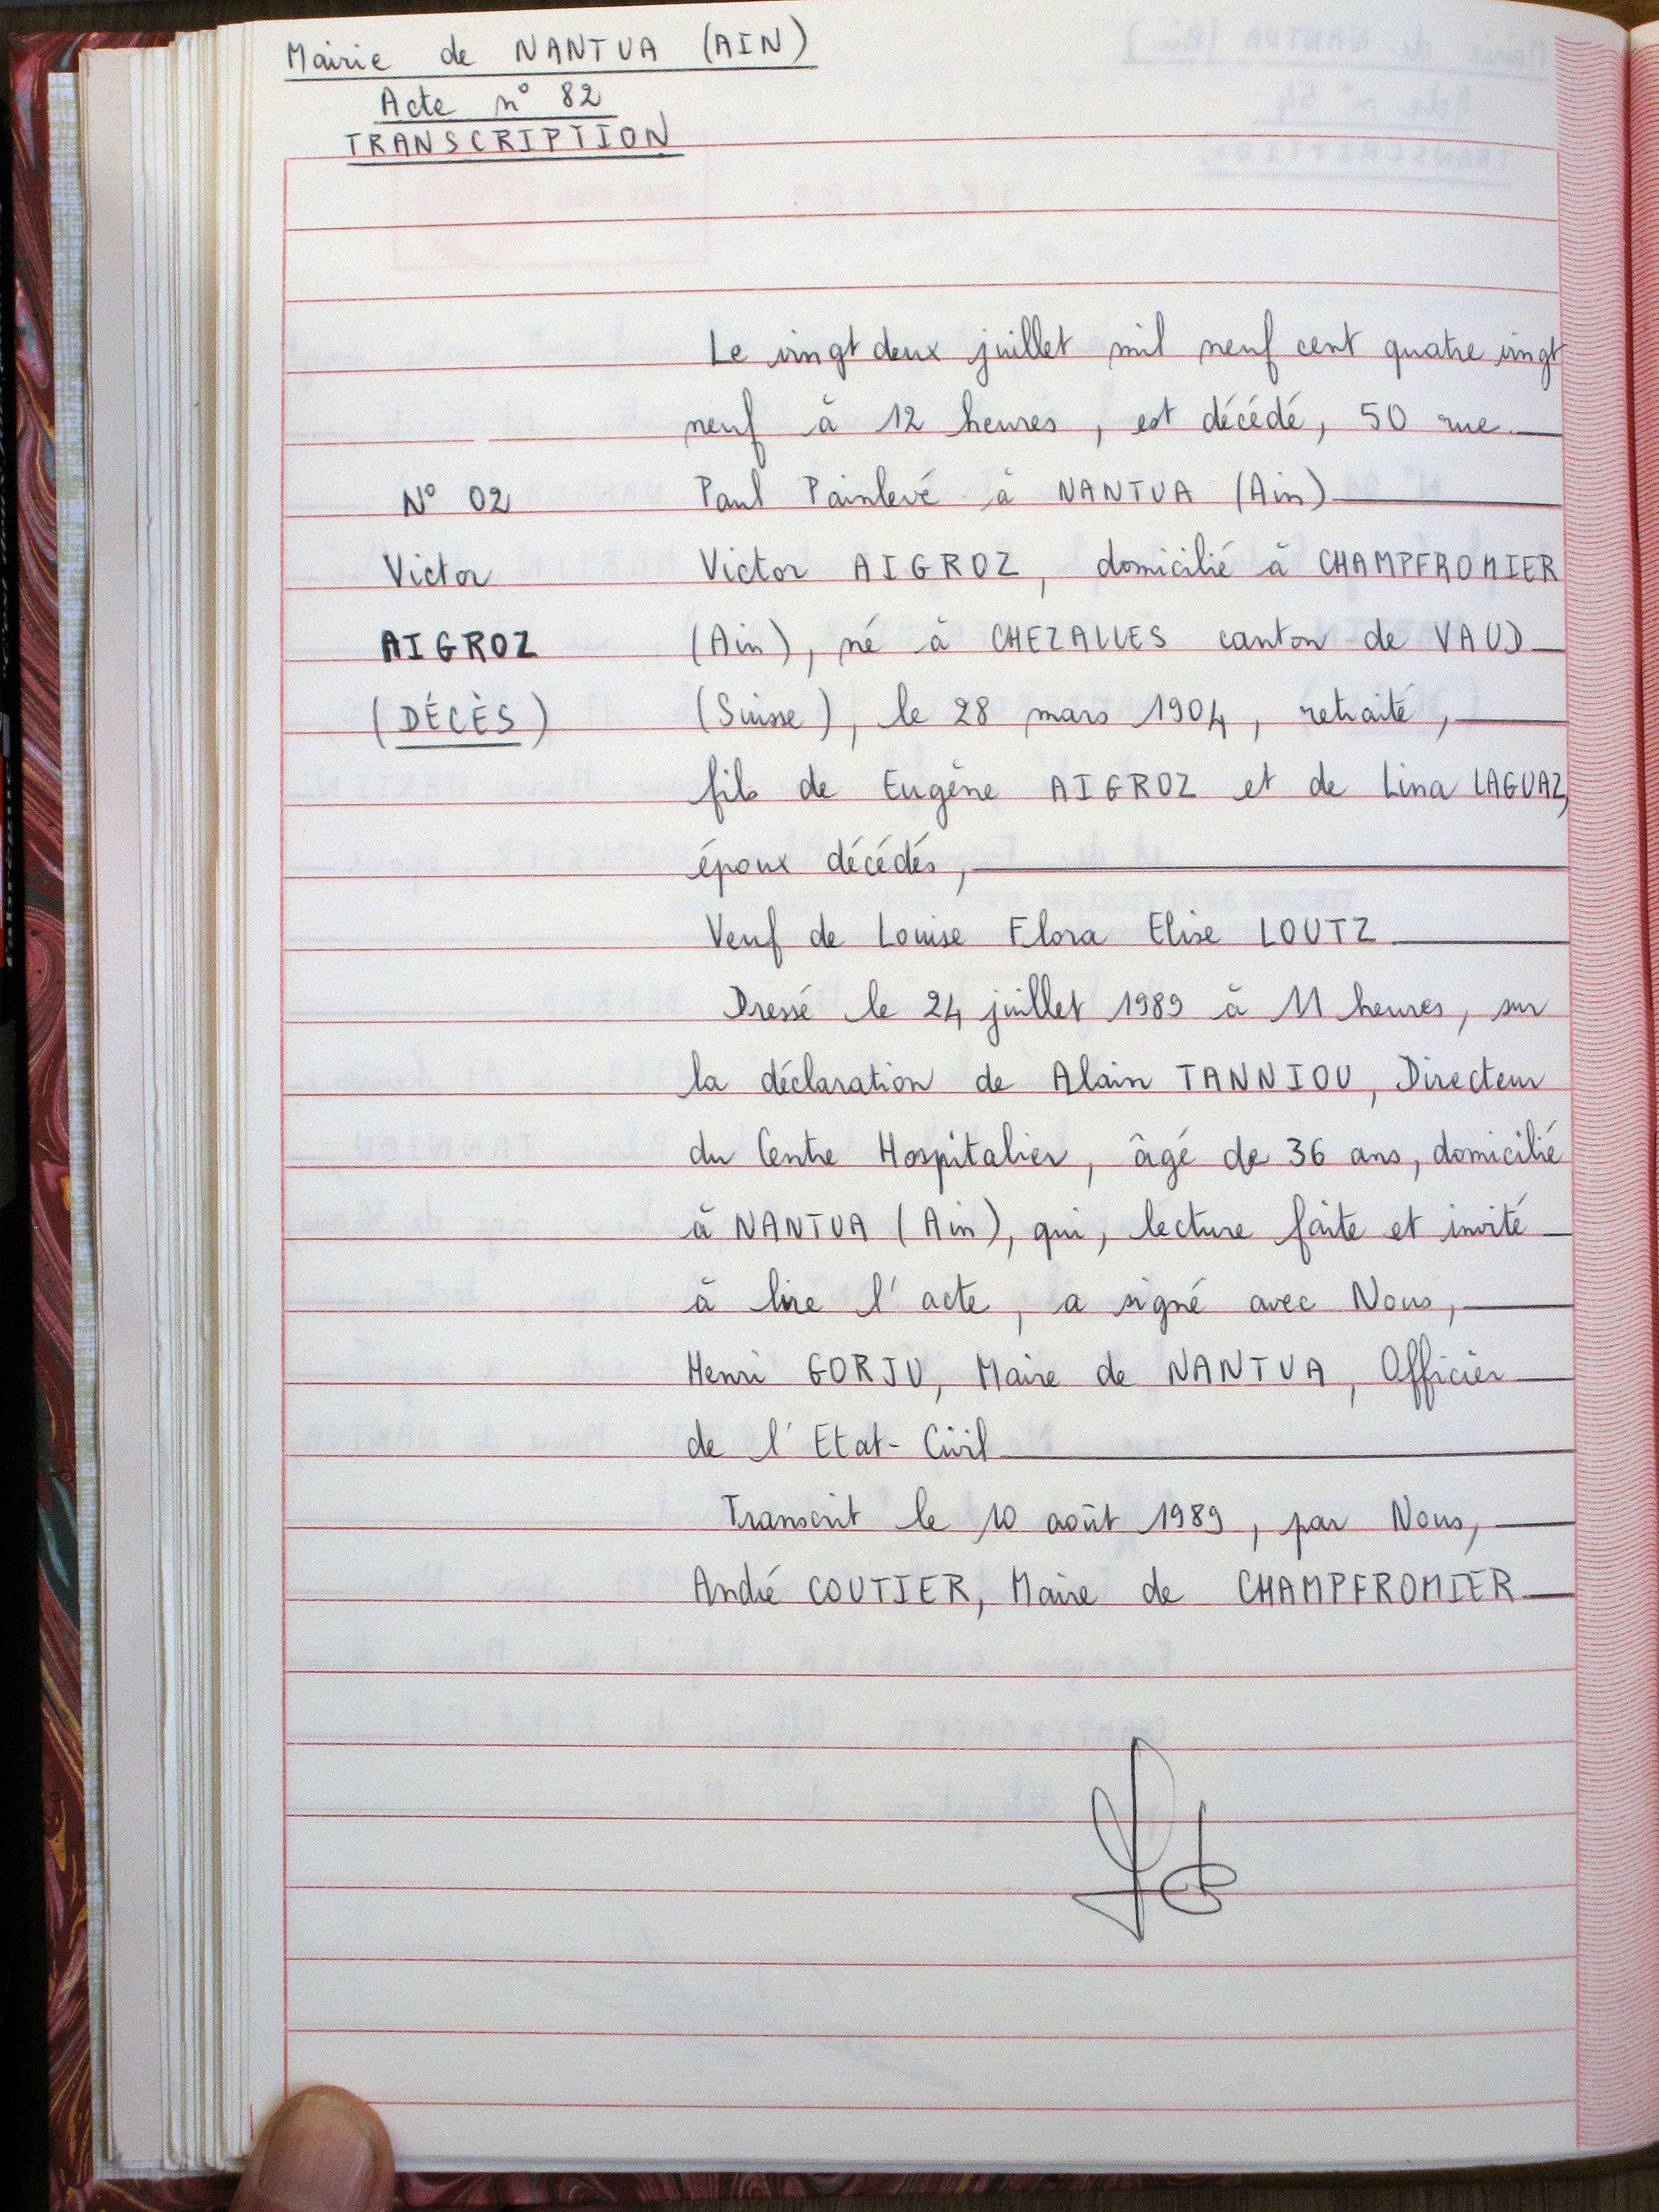 Mairie de NANTUA (AIN)
Acte n° 82
TRANSCRIPTION
Le vingt deux juillet mil neuf cent quatre vingt
neuf à 12 heures, est décédé, 50 rue
Paul Painlevé à NANTUA (Ain)
Victor AIGROZ, domicilié à CHAMPFROMIER
(Ain), né à CHEZALLES canton de VAUD
(Suisse), le 28 mars 1904, retraité,
fils de Eugène AIGROZ et de Lina LAGUAZ,
époux décédés,
Veuf de Louise Flora Elise LOUTZ
Dressé le 24 juillet 1989 à 11 heures, sur
la déclaration de Alain TANNIOU, Directeur
du Centre Hospitalier, âgé de 36 ans, domicilié
à NANTUA (Ain), qui, lecture faite et invité
à lire l'acte, a signé avec Nous,
Henri GORJU, Maire de NANTUA, Officier
de l'Etat-Civil
Transcrit le 10 août 1989, par Nous,
André COUTIER, Maire de CHAMPFROMIER
N° 02
Victor
AIGROZ
(DÉCÈS)